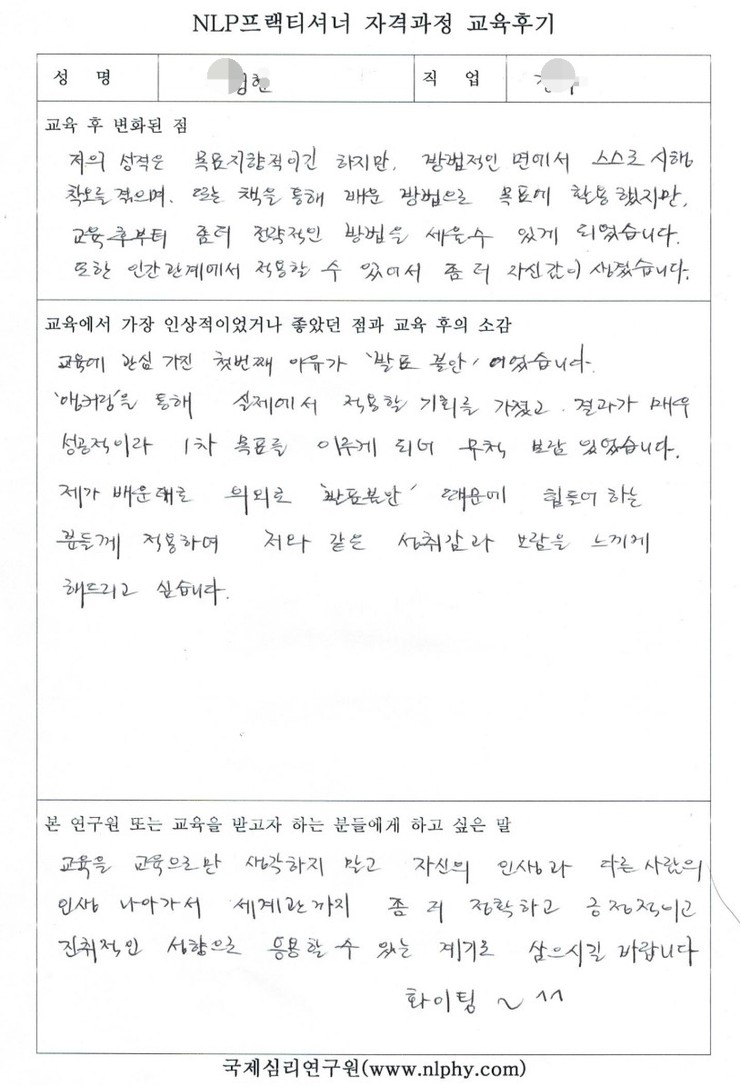 NLP프랙티셔너 자격과정 교육후기
성 명
직 업
교육 후 변화된 점
저의 성격은 목표지향적이긴 하지만, 방법적인 면에서 스스로 시행
착오를 겪으며, 또는 책을 통해 배운 방법으로 목표에 활용했지만,
교육후부터 좀더 전략적인 방법을 세울수 있게 되었습니다.
또한 인간관계에서 적용할 수 있어서 좀 더 자신감이 생겼습니다.
교육에서 가장 인상적이었거나 좋았던 점과 교육 후의 소감
교육에 관심 가진 첫번째 이유가 '발표 불안' 이었습니다.
'앵커링'을 통해 실제에서 적용할 기회를 가졌고. 결과가 매우
성공적이라 1차 목표를 이루게 되어 무척 보람 있었습니다.
제가 배운대로 의외로 '발표불안' 때문에 힘들어 하는
분들께 적용하여 저와 같은 성취감과 보람을 느끼게
해드리고 싶습니다.
본 연구원 또는 교육을 받고자 하는 분들에게 하고 싶은 말
교육을 교육으로만 생각하지 말고 자신의 인생과 다른사람의
인생 나아가서 세계관까지 좀 더 정확하고 긍정적이고
진취적인 성향으로 응용할 수 있는 계기로 삼으시길 바랍니다
화이팅 ~ ^^
국제심리연구원(www.nlphy.com)